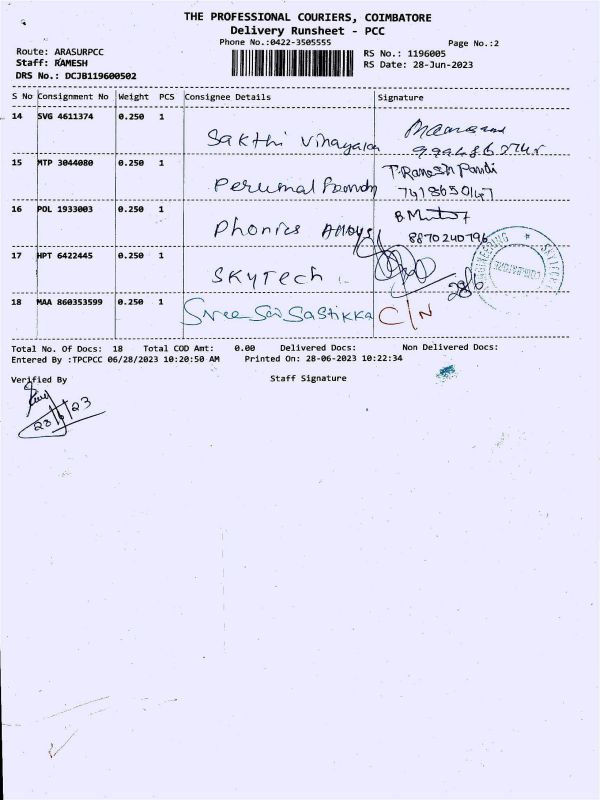 THE PROFESSIONAL COURIERS, COIMBATORE
Delivery Runsheet - PCC
Phone No.:0422-3505555
Page No.:2
Route: ARASURPCC
RS No.: 1196005
Staff: RAMESH
RS Date: 28-Jun-2023
DRS No.: DCJB119600502
S No Consignment No Weight PCS Consignee Details Signature
14 SVG 4611374 0.250 1
Sakthi Vinayaga
15 MTP 3044080 0.250 1
T. Ramesh Pandi
Perumal foundry 7418650147
16 POL 1933003 0.250 1
Phonics Alloys 8870240796
17 HPT 6422445 0.250 1
SKYTECH
28/6
18 MAA 860353599 0.250 1
Sree Sai Sastikka C/N
Total No. Of Docs: 18 Total COD Amt: 0.00 Delivered Docs: Non Delivered Docs:
Entered By :TPCPCC 06/28/2023 10:20:50 AM Printed On: 28-06-2023 10:22:34
Verified By Staff Signature
28/6/23